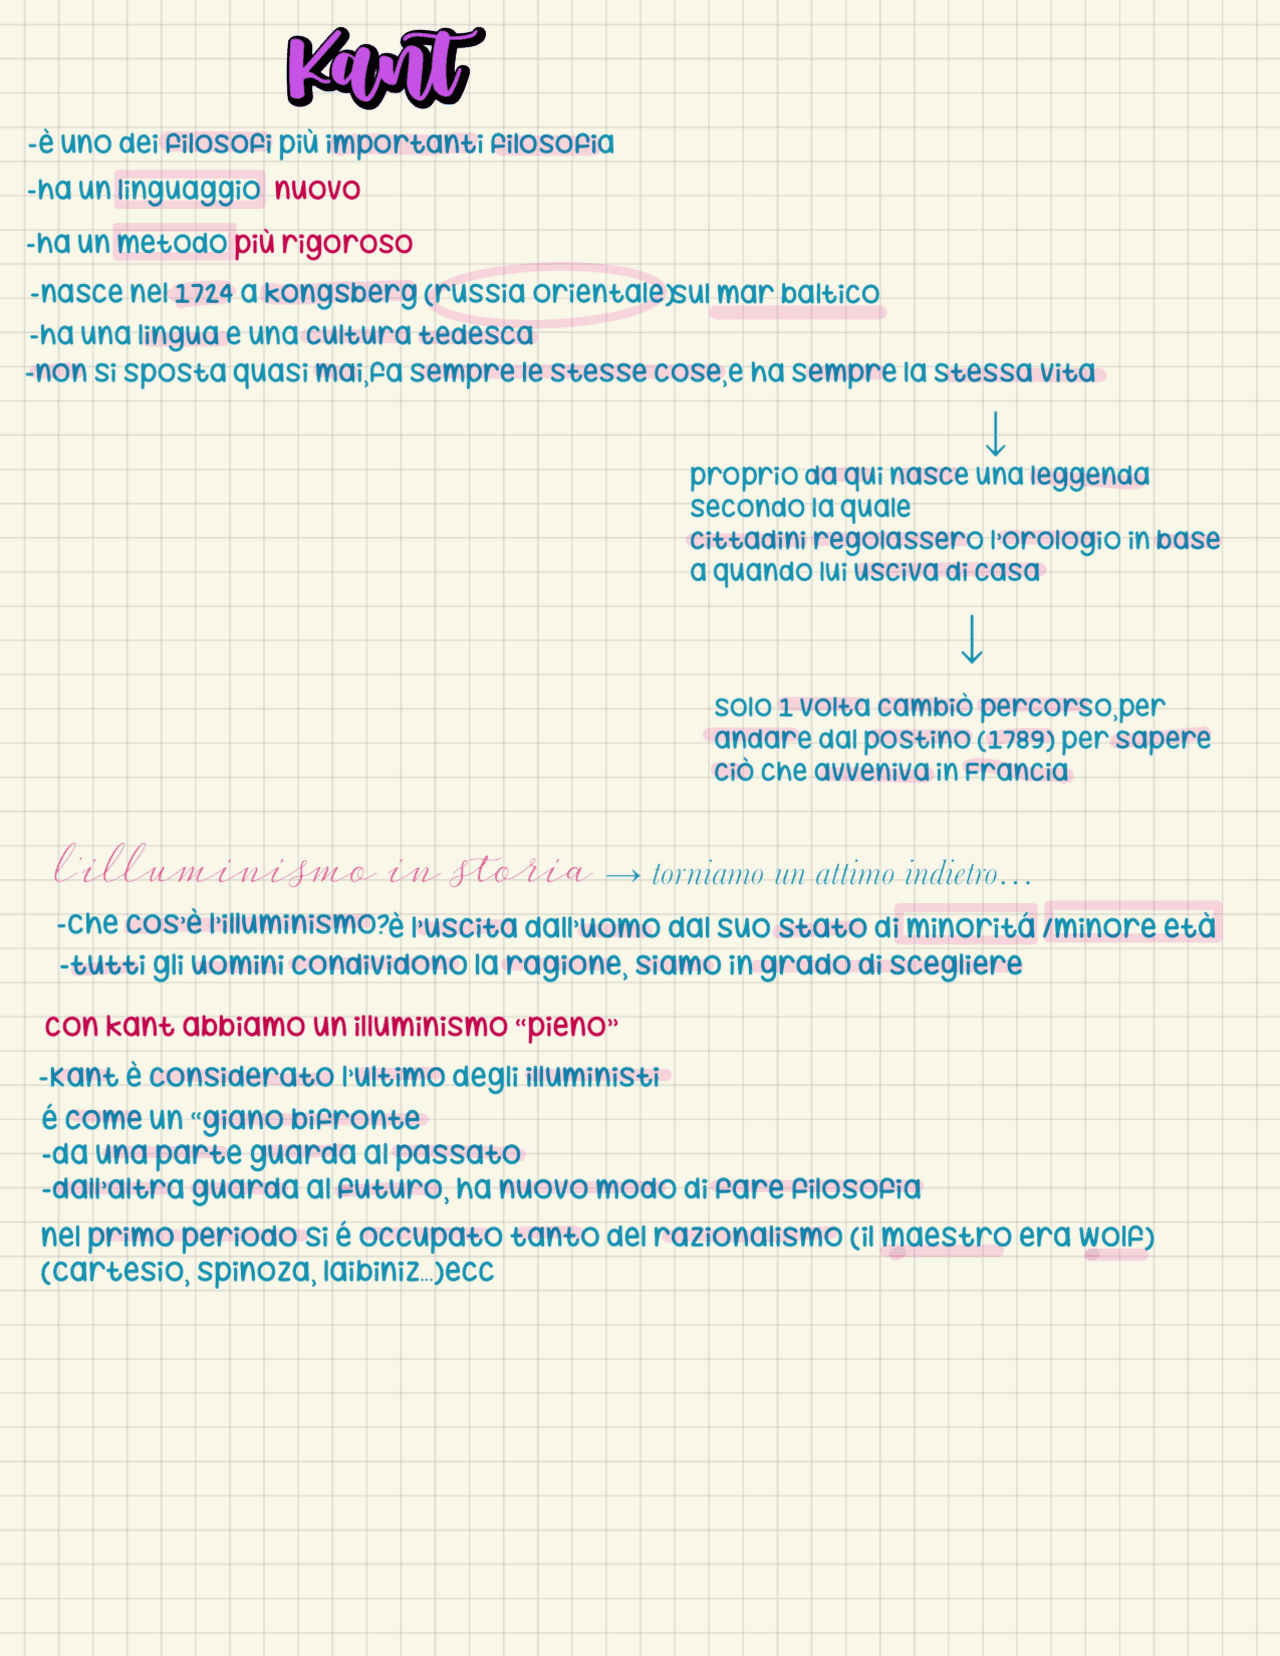 Kant
-è uno dei filosofi più importanti filosofia
-ha un linguaggio nuovo
-ha un metodo più rigoroso
-nasce nel 1724 a kongsberg (russia orientale)sul mar baltico
-ha una lingua e una cultura tedesca
-non si sposta quasi mai,fa sempre le stesse cose,e ha sempre la stessa vita
↓
proprio da qui nasce una leggenda
secondo la quale
cittadini regolassero l'orologio in base
a quando lui usciva di casa
↓
solo 1 volta cambiò percorso,per
andare dal postino (1789) per sapere
ciò che avveniva in Francia
l'illuminismo in storia → torniamo un attimo indietro...
-che cos'è l'illuminismo?è l'uscita dall'uomo dal suo stato di minoritá /minore età
-tutti gli uomini condividono la ragione, siamo in grado di scegliere
con kant abbiamo un illuminismo “pieno”
-Kant è considerato l'ultimo degli illuministi
é come un “giano bifronte
-da una parte guarda al passato
-dall'altra guarda al futuro, ha nuovo modo di fare filosofia
nel primo periodo si é occupato tanto del razionalismo (il maestro era Wolf)
(cartesio, spinoza, laibiniz...)ecc